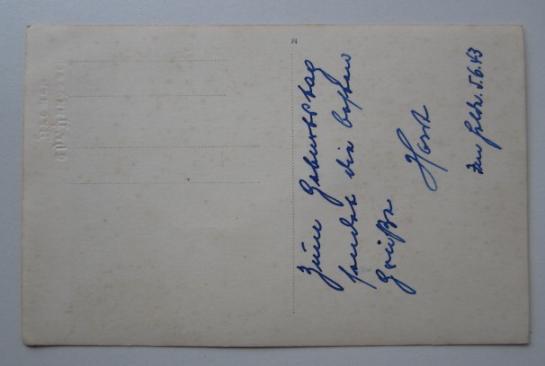 Zum Geburtstag
sendet die besten
Grüße
Horst
Im Felde. 5.6.43